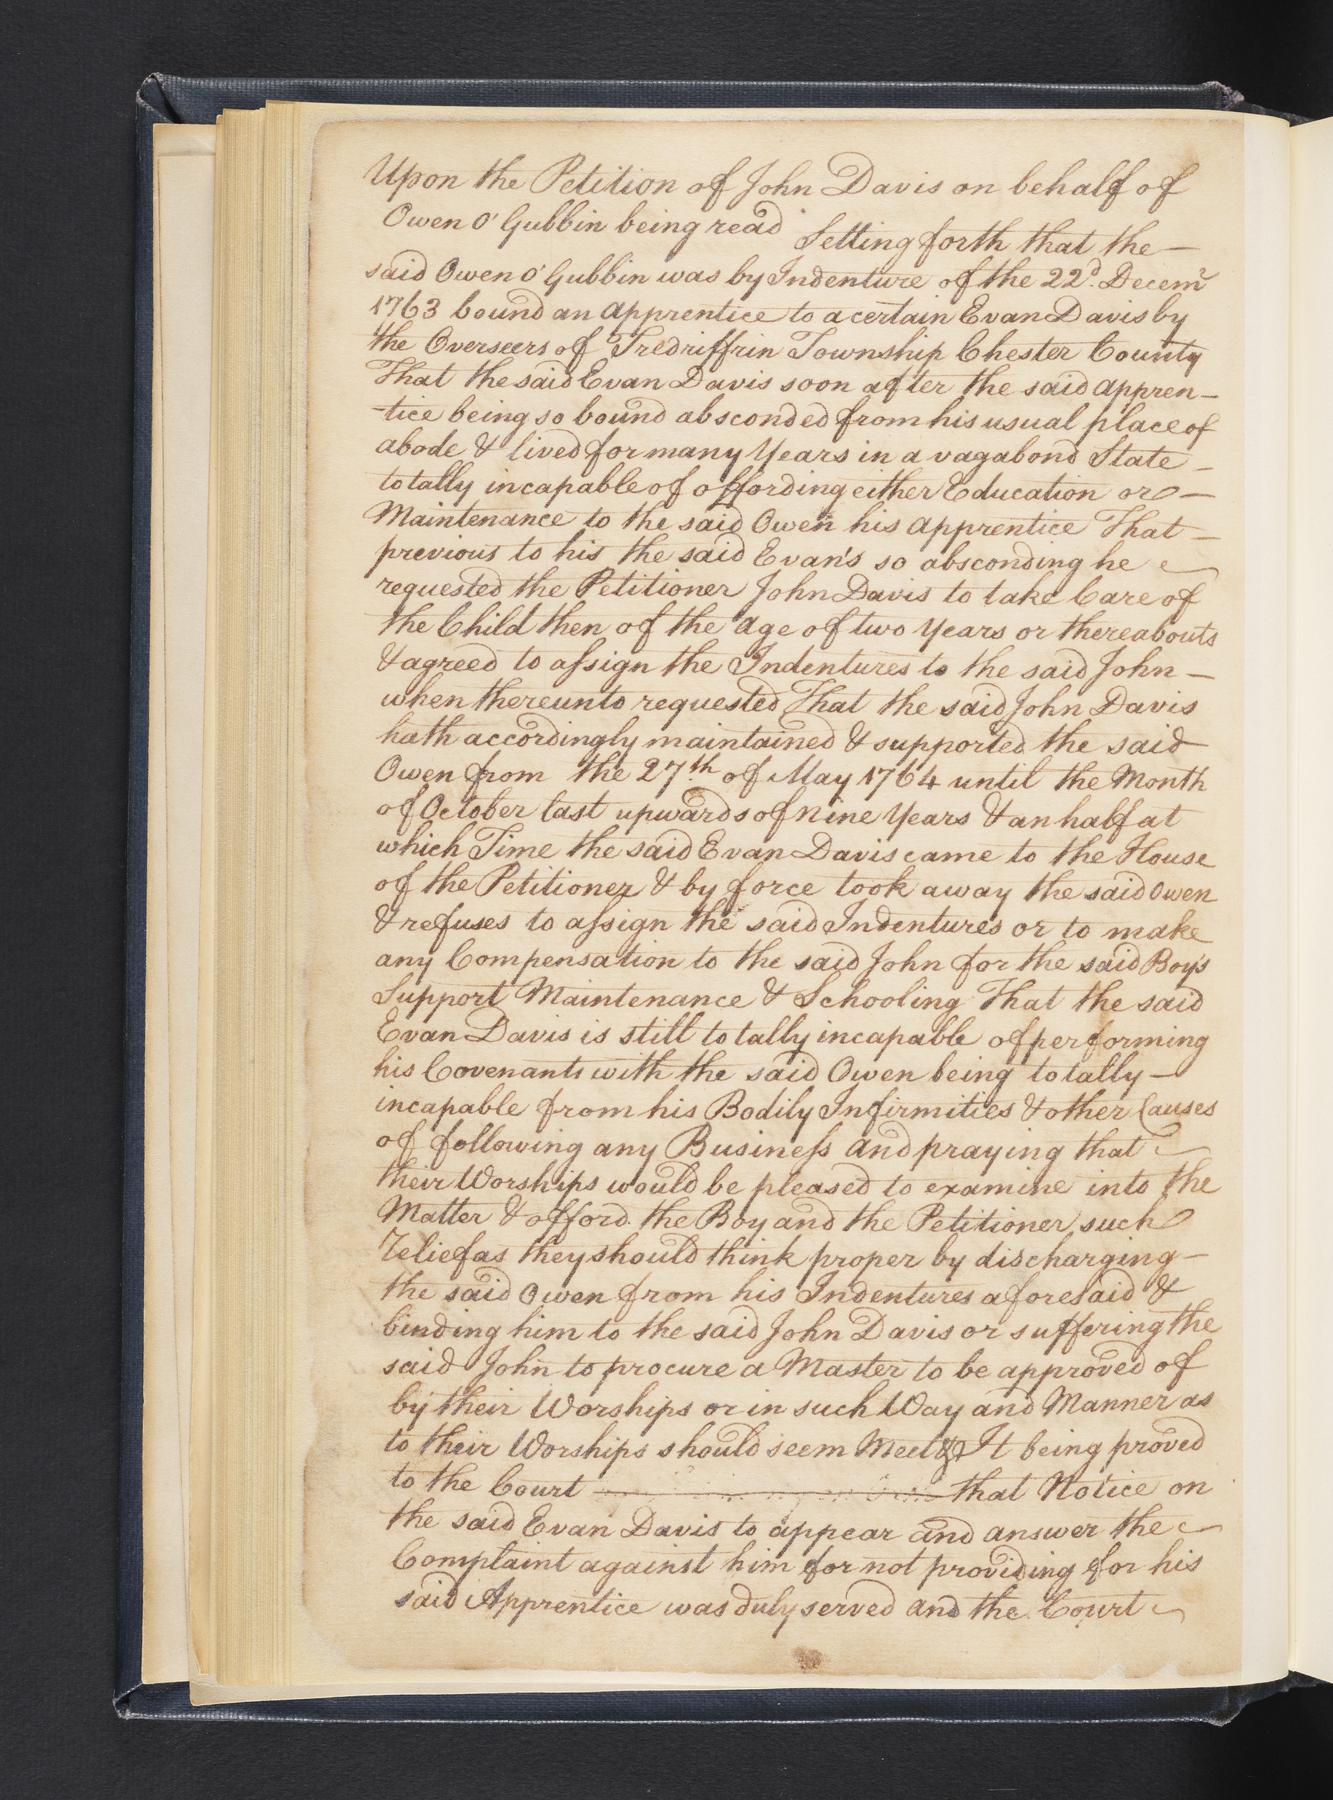 Upon the Petition of John Davis on behalf of
Owen O'Gubbin being read Setting forth that the —
said Owen O'Gubbin was by Indenture of the 22d. Decemr
1763 bound an apprentice to a certain Evan Davis by
the Overseers of Tredriffrin Township Chester County
That the said Evan Davis soon after the said appren-
-tice being so bound absconded from his usual place of
abode & lived for many Years in a vagabond State —
totally incapable of affording either Education or —
Maintenance to the said Owen his apprentice That —
previous to his the said Evan's so absconding he
requested the Petitioner John Davis to take Care of
the Child then of the age of two Years or thereabouts
& agreed to assign the Indentures to the said John —
when thereunto requested That the said John Davis
hath accordingly maintained & supported the said
Owen from the 27th of May 1764 until the Month
of October last upwards of Nine Years & an half at
which Time the said Evan Davis came to the House
of the Petitioner & by force took away the said Owen
& refuses to assign the said Indentures or to make
any Compensation to the said John for the said Boys
Support Maintenance & Schooling That the said
Evan Davis is still totally incapable of performing
his Covenants with the said Owen being totally —
incapable from his Bodily Infirmities & other Causes
of following any Business and praying that
their Worships would be pleased to examine into the
Matter & afford the Boy and the Petitioner such
Relief as they should think proper by discharging —
the said Owen from his Indentures aforesaid &
binding him to the said John Davis or suffering the
said John to procure a Master to be approved of
by their Worships or in such Way and Manner as
to their Worships should seem Meet & It being proved
to the Court that Notice on
the said Evan Davis to appear and answer the
Complaint against him for not providing for his
said Apprentice was duly served and the Court